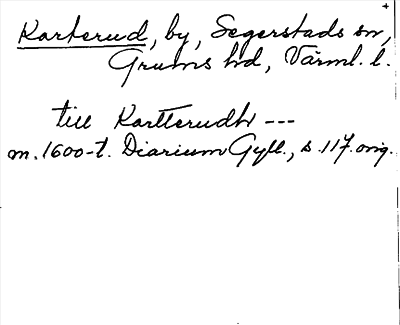 Karterud, by, Segerstads sn,
Grums hd, Värml. l.
till Kartterudh ---
m. 1600-t. Diarium Gyll., s. 117. orig.